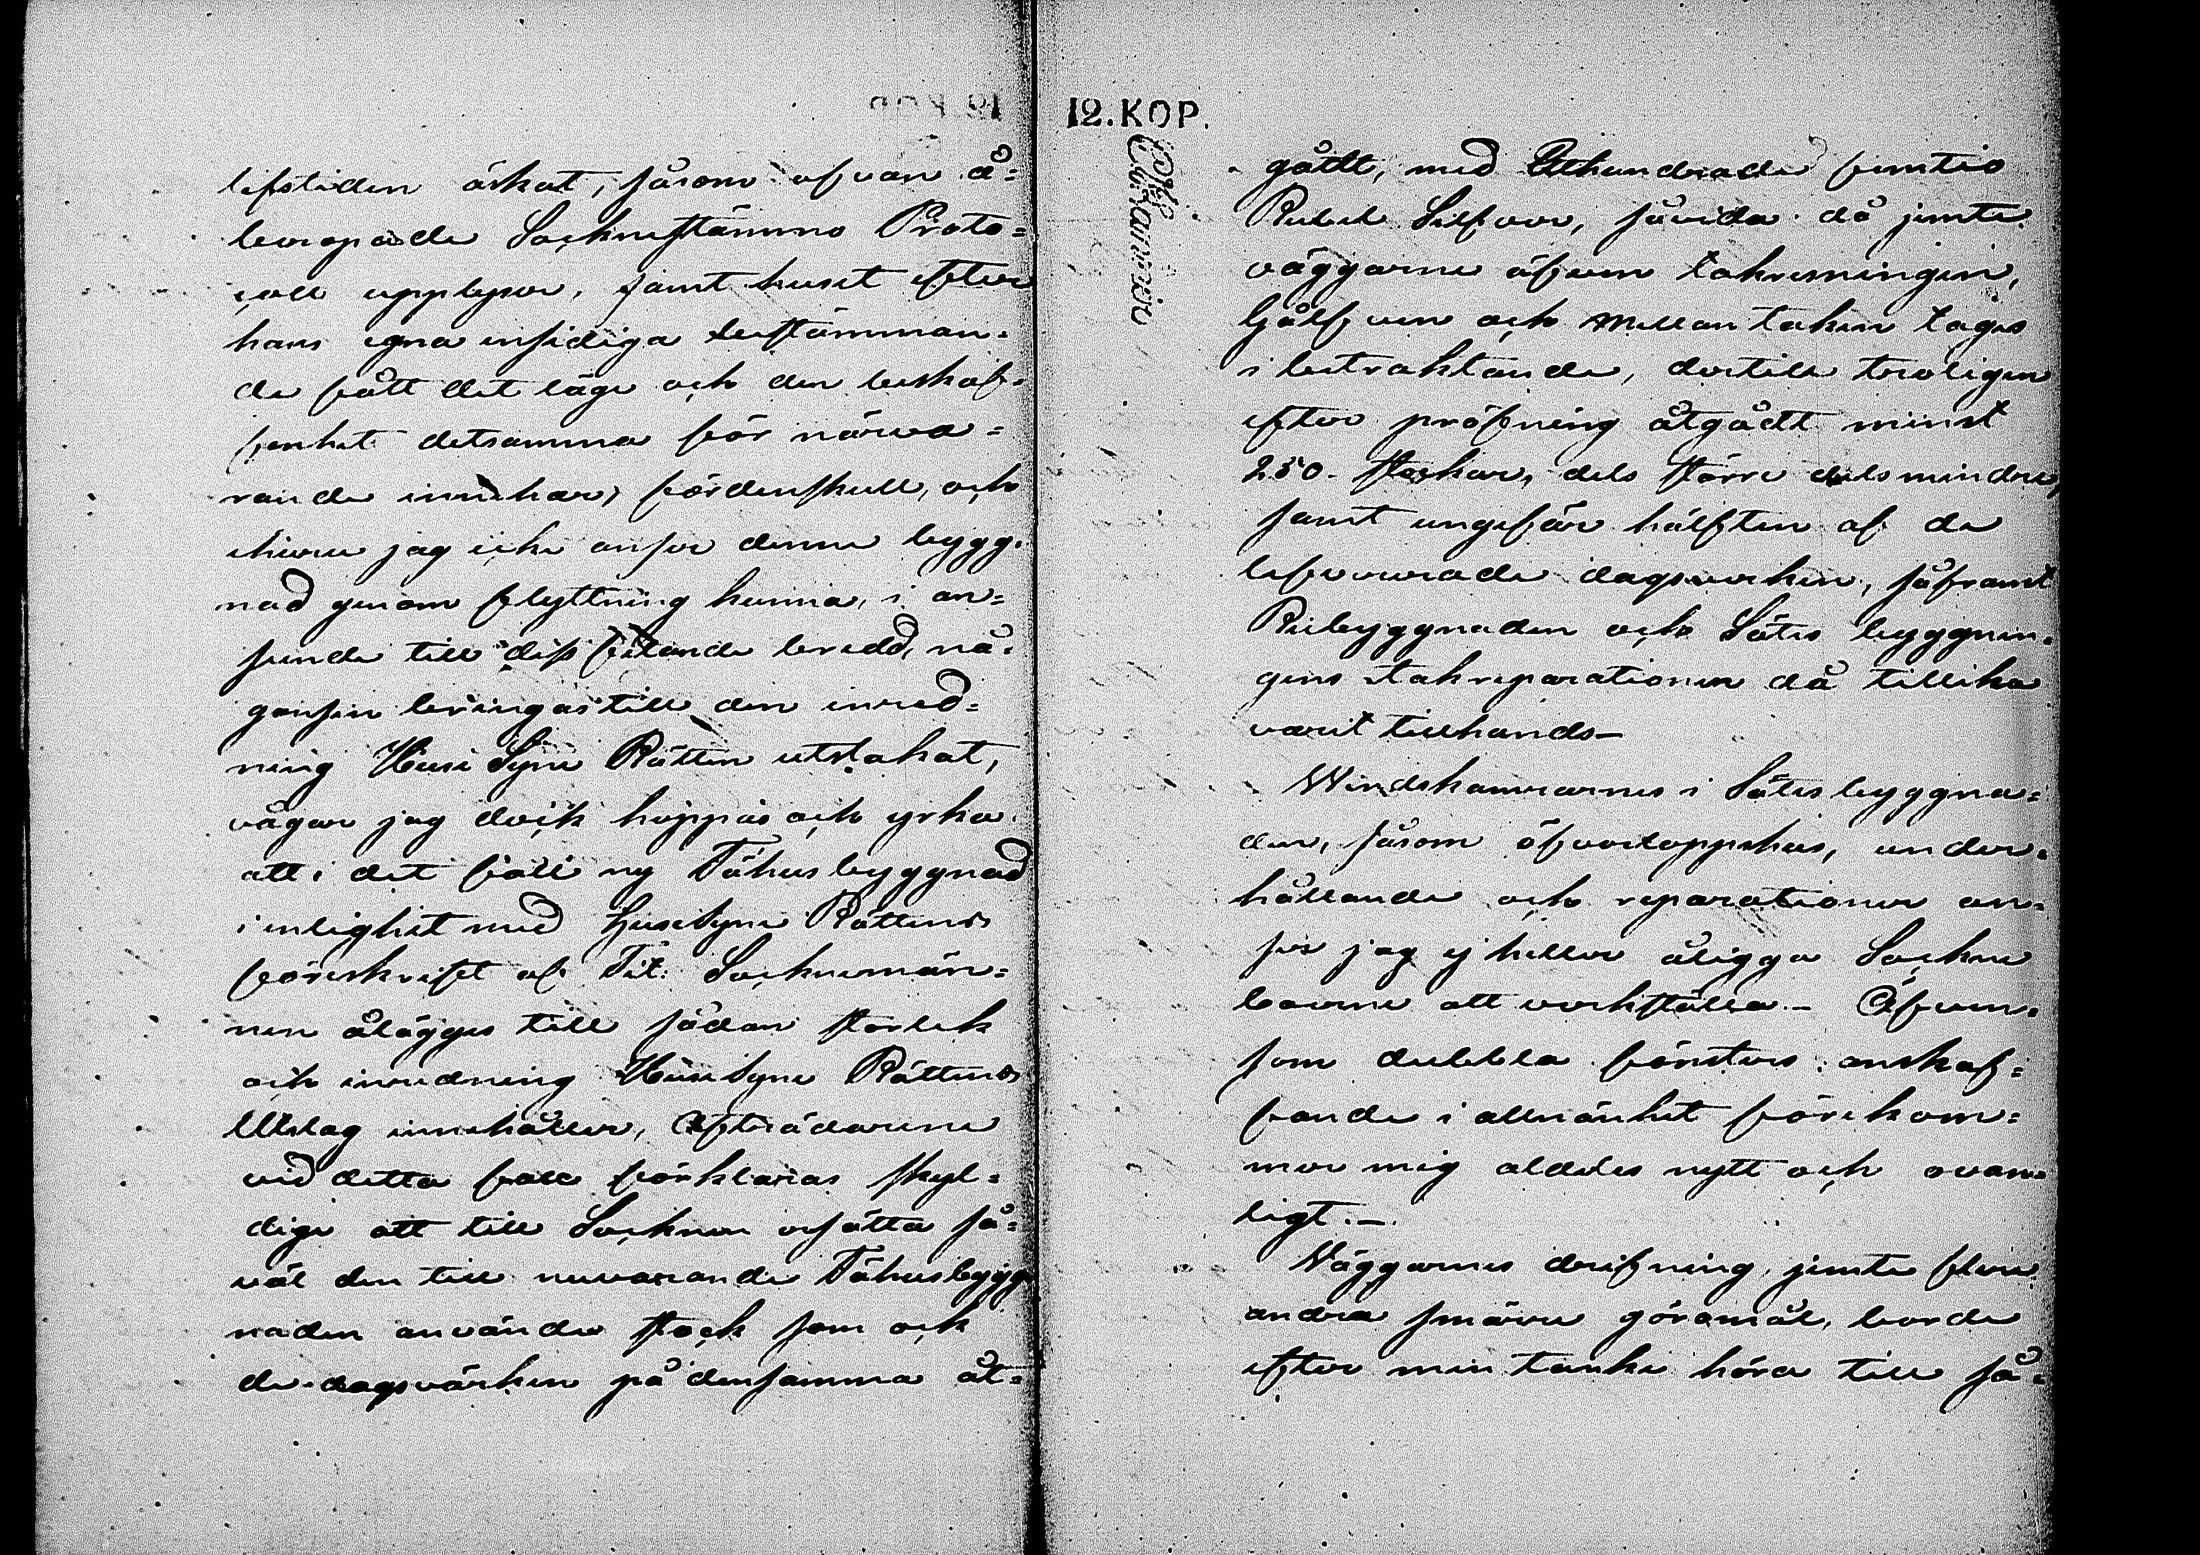 lifstiden äskat, såsom ofvan å=
beropade Sockne stämmo Proto=
coll upplyser, samt huset efter
hans egna ensidiga bestämman=
de fått det läge och den beskaf=
fenhet detsamma för närva=
rande innehar, fördenskull, och
ehuru jag icke anser denna bygg=
nad genom flyttning kunna, i an=
seende till dess felande bredd, nå=
gonsin bringas till den inred=
ning Huse Syne Rätten utstakat,
vågar jag dock hoppas och yrka
att i det fall ny Fähus byggnad
i enlighet med Huse Syne Rättens
föreskrift af Tit: Socknemän=
nen ålägges till sådan storlek
och inredning Huse Syne Rättens
Utslag innehåller, Afträdarene
vid detta fall förklaras skyl=
dige att till Socknen ersätta så=
väl den till nuvarande Fähusbygg
naden använde stock som ock
de dagsvärken på densamma åt=
12. KOP.
gådt, med Etthundrade femtio
Rubel Silfver, såvida då jemte
väggarne äfven takresningen,
Golfven och mellantaken tages
i betraktande, dertill troligen
efter pröfning åtgådt minst
250. stockar, dels större dels mindre,
samt ungefär hälften af de
lefvererade dagsverken, såframt
Ribyggnaden och Sätes byggnin=
gens takreparationer då tillika
varit tillhands—
Windskamrarnes i Sätes byggna=
den, såsom öfverloppshus, under=
hållande och reparationer an=
ser jag ej heller åligga Sockne
boerne att verkställa.— Äfven=
som dubbla fönstres anskaf=
fande i allmänhet förekom=
mer mig alldeles nytt och ovan=
ligt.—
Väggarnes drifning, jemte flere
andra smärre göromål, borde
efter min tanke höra till så=